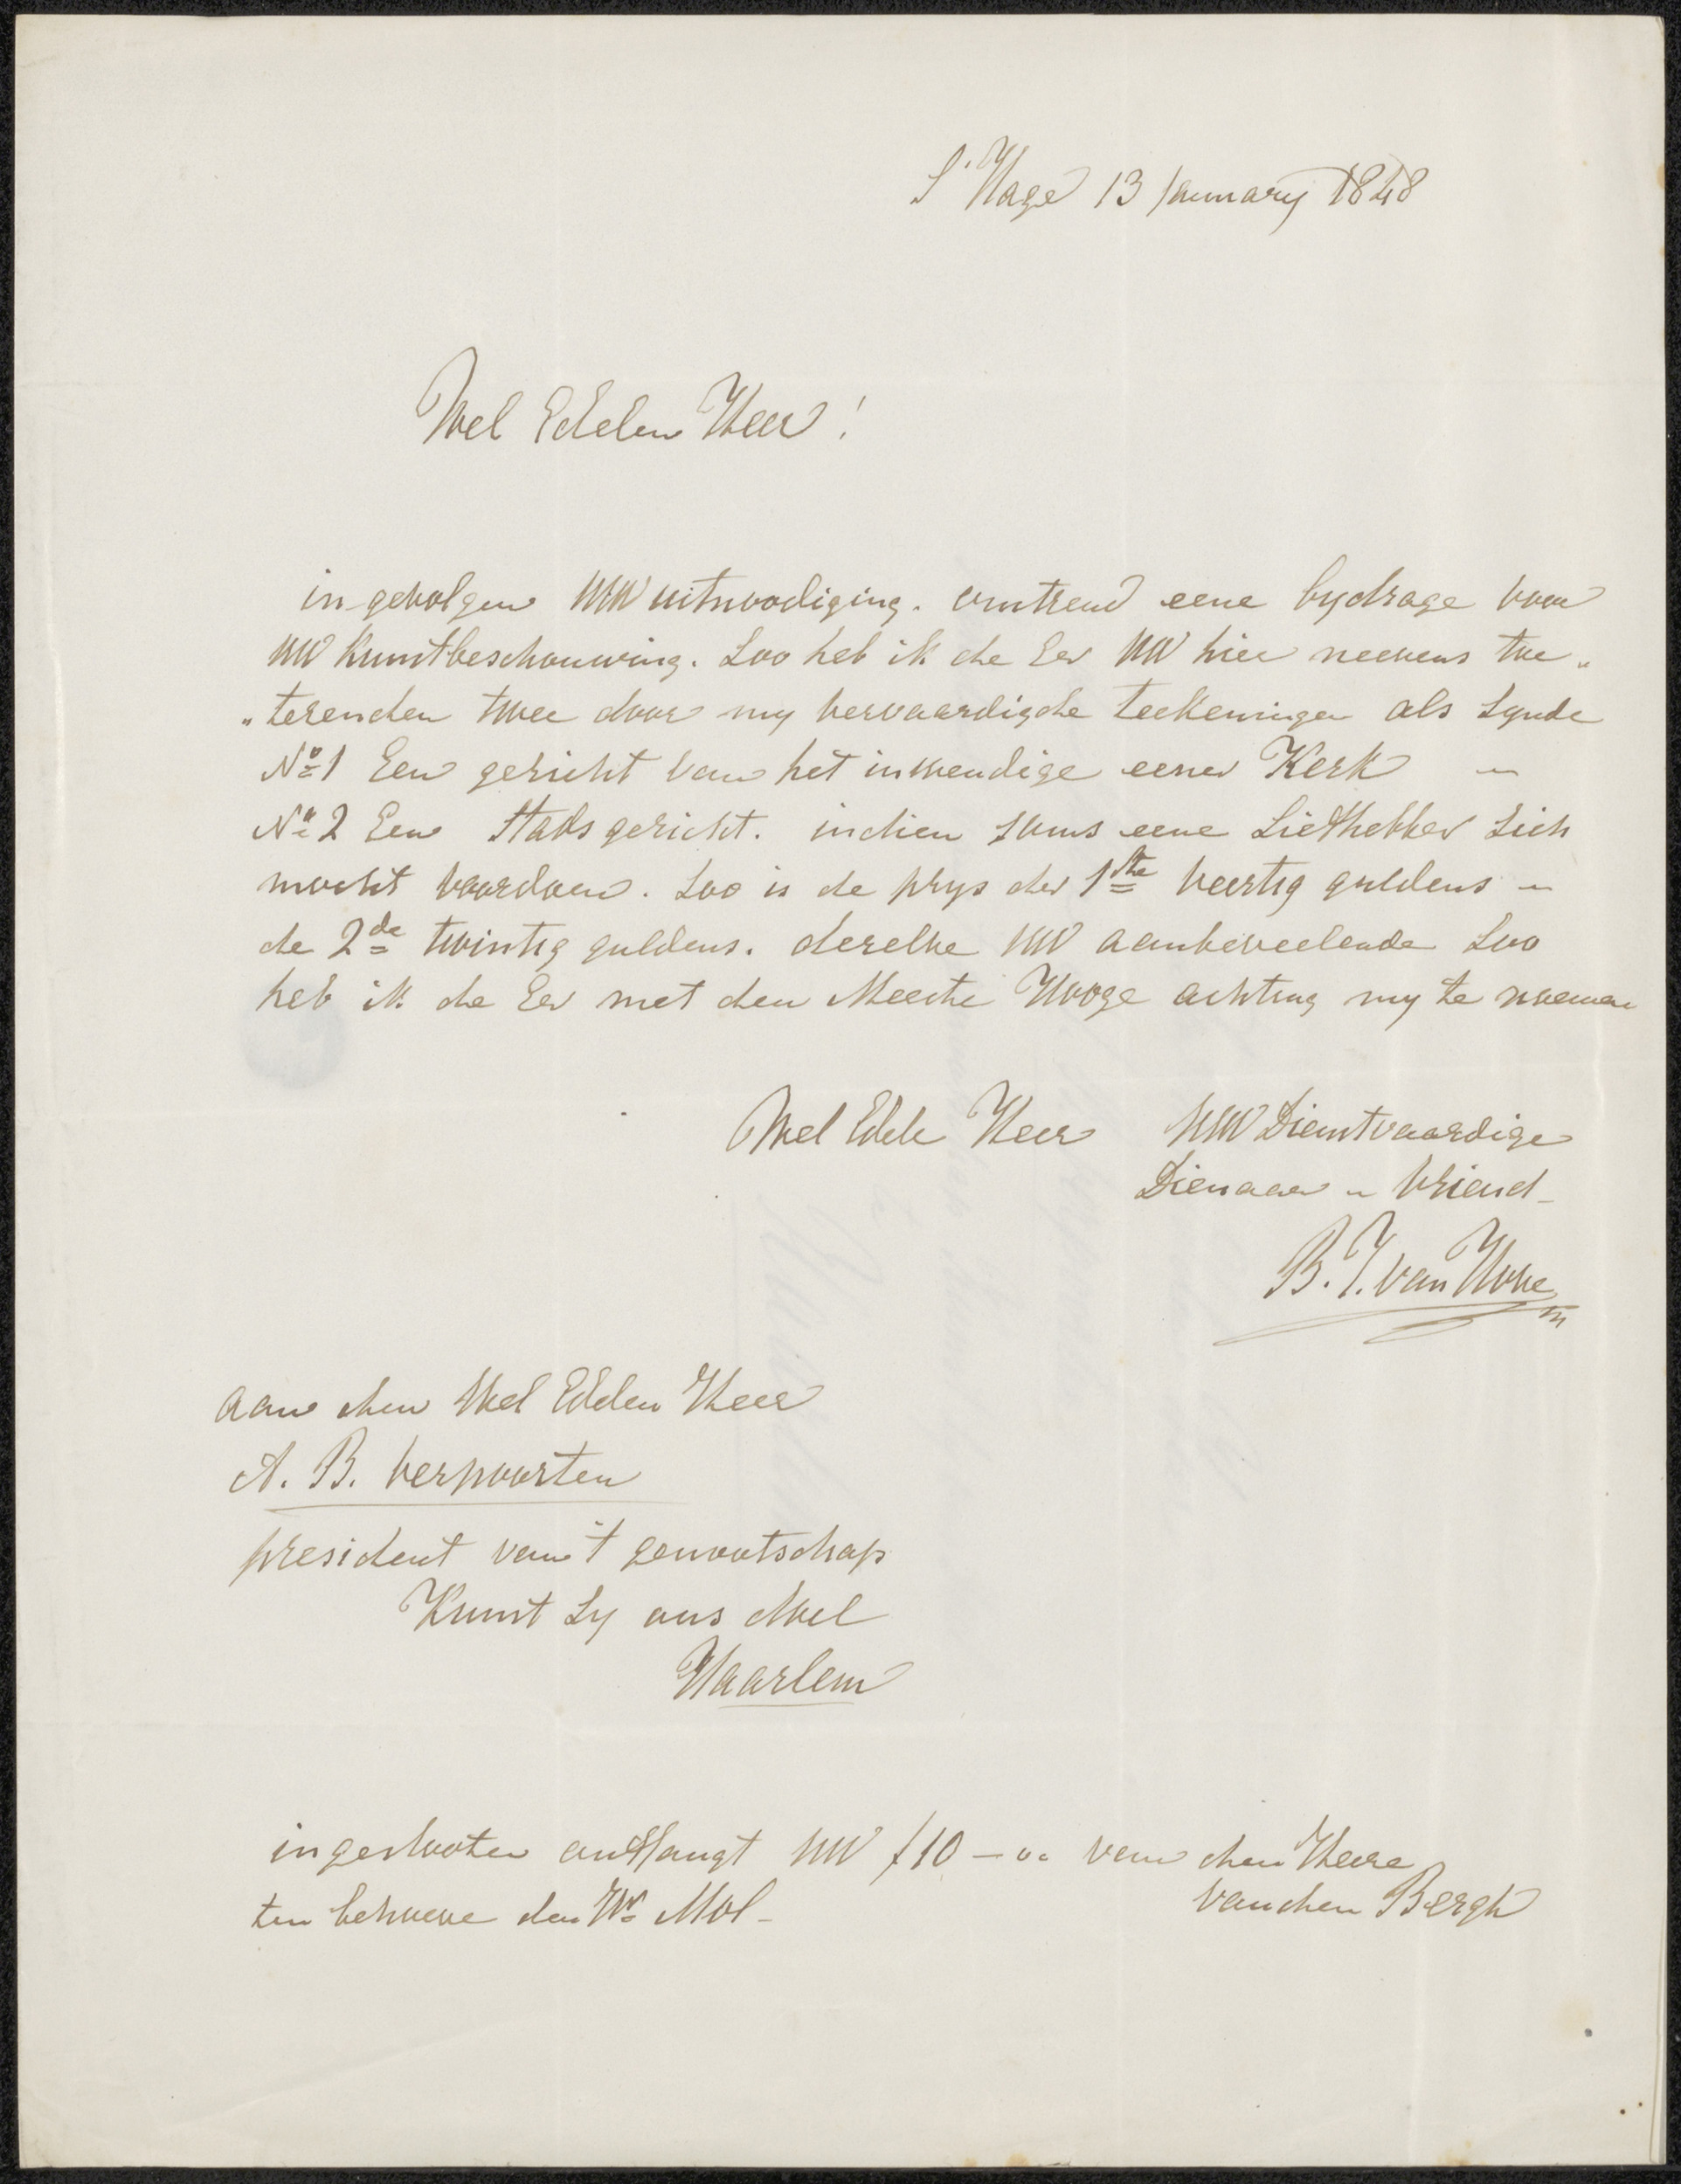 S'Hage 13 January 1848
Wel Edelen Heer!
in gevolgen UW uitnoodiging. omtrend eene bydrage voor
UW Kunstbeschouwing. Zoo heb ik de Eer UW hier neevens toe„
„tezenden twee door my vervaardigde teekeningen als zynde
No 1 Een gezicht van het inwendige eener Kerk –
No 2 Een Stads gezicht. indien soms eene Liefhebber zich
mocht voordoen. Zoo is de prys der 1ste veertig guldens –
de 2de twintig guldens. dezelve UW aanbeveelende Zoo
heb ik de Eer met den Meeste Hooge achting my te noemen
Wel Edele Heer UW Dienstvaardige
Dienaar en Vriend
B. J. van Hove
aan den Wel Edelen Heer
A. B. Verpoorten
president van 't genootschap
Kunst Zy ons doel
Haarlem
ingeslooten ontfangt UW ƒ10 – van den Heere
van den Bergh
ten behoeve den Wr Mol –